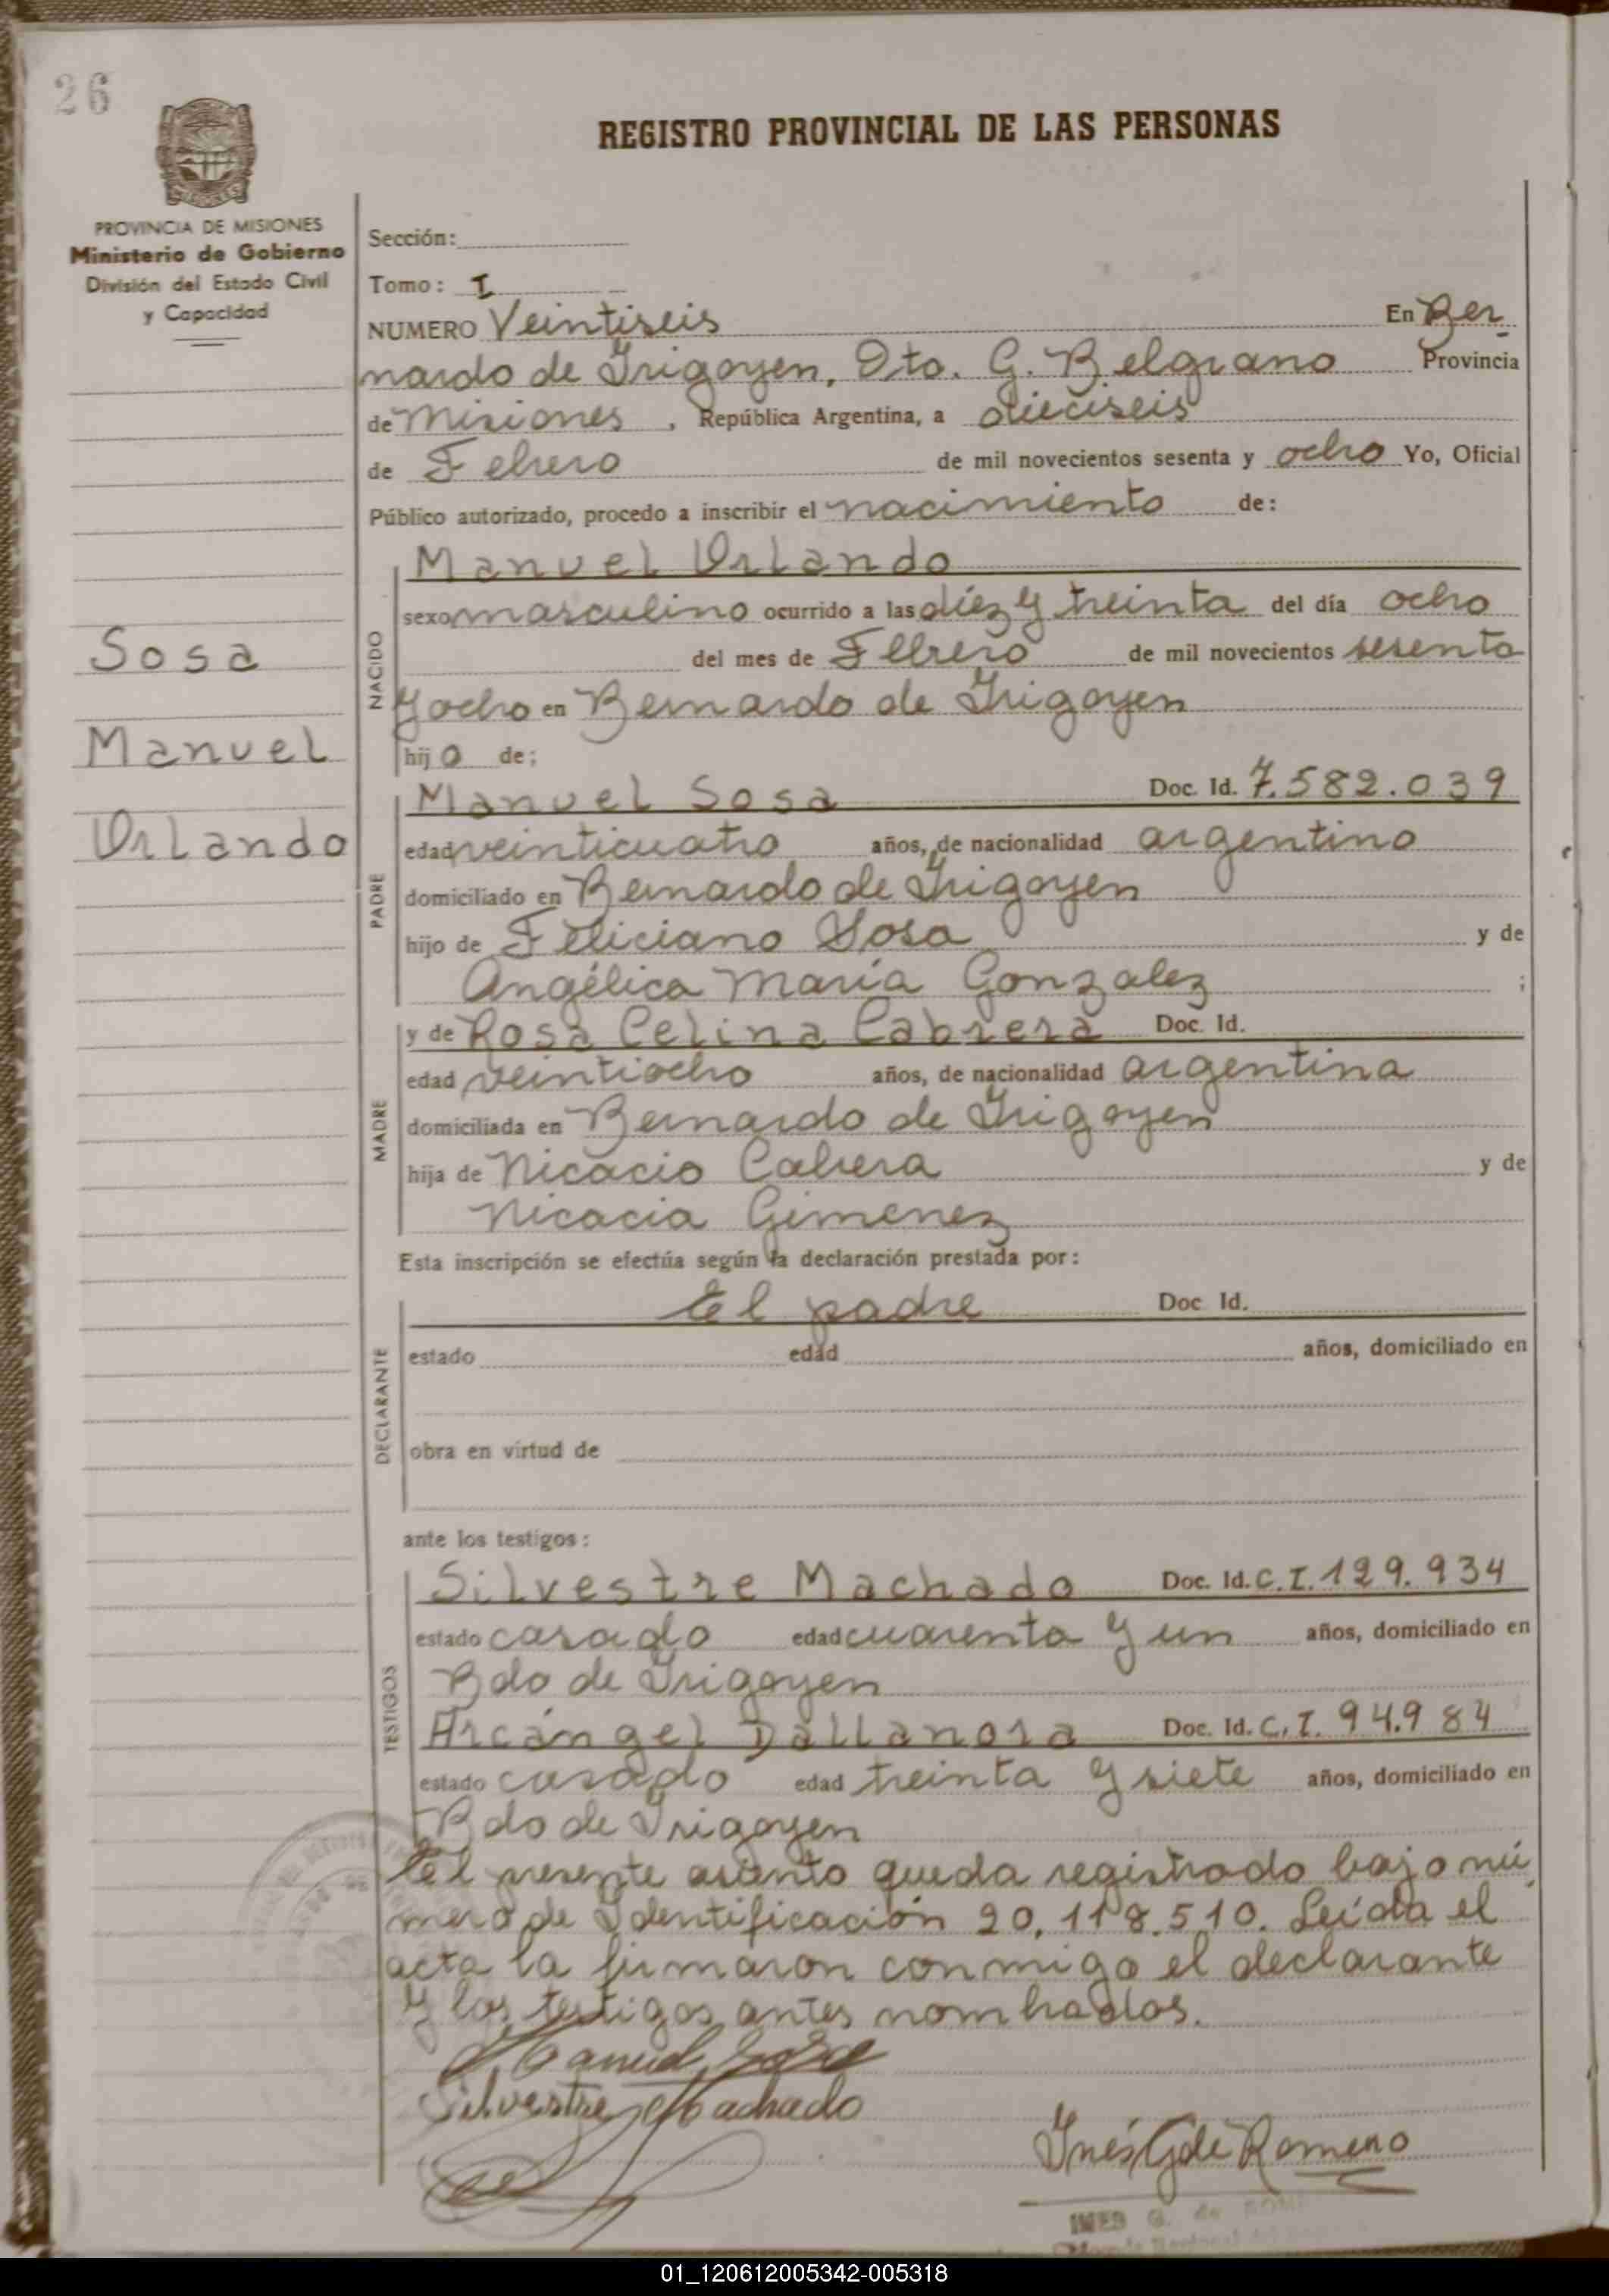 26
REGISTRO PROVINCIAL DE LAS PERSONAS
PROVINCIA DE MISIONES
Ministerio de Gobierno
División del Estado Civil
y Capacidad
Sosa
Manuel
Orlando
Sección:
Tomo: I
NUMERO Veintiseis En Ber
nardo de Irigoyen, Dto. G. Belgrano Provincia
de Misiones, República Argentina, a dieciseis
de Febrero de mil novecientos sesenta y ocho Yo, Oficial
Público autorizado, procedo a inscribir el nacimiento de:
NACIDO
Manuel Orlando
sexo masculino ocurrido a las diez y treinta del día ocho
del mes de Febrero de mil novecientos sesenta
y ocho en Bernardo de Irigoyen
hijo de;
PADRE
Manuel Sosa Doc. Id. 7.582.039
edad veinticuatro años, de nacionalidad argentino
domiciliado en Bernardo de Irigoyen
hijo de Feliciano Sosa y de
Angélica María Gonzalez ;
MADRE
y de Rosa Celina Cabrera Doc. Id.
edad veintiocho años, de nacionalidad argentina
domiciliada en Bernardo de Irigoyen
hija de Nicacio Cabrera y de
Nicacia Gimenez
Esta inscripción se efectúa según la declaración prestada por:
DECLARANTE
el padre Doc. Id.
estado edad años, domiciliado en
obra en virtud de
ante los testigos:
TESTIGOS
Silvestre Machado Doc. Id. C.I. 129.934
estado casado edad cuarenta y un años, domiciliado en
Bdo de Irigoyen
Arcángel Dallanora Doc. Id. C.I. 94.984
estado casado edad treinta y siete años, domiciliado en
Bdo de Irigoyen
El presente asiento queda registrado bajo nú
mero de Identificación 20.118.510. Leída el
acta la firmaron conmigo el declarante
y los testigos antes nombrados.
Manuel Sosa
Silvestre Machado
Inés G de Romero
INES G. de
01_120612005342-005318